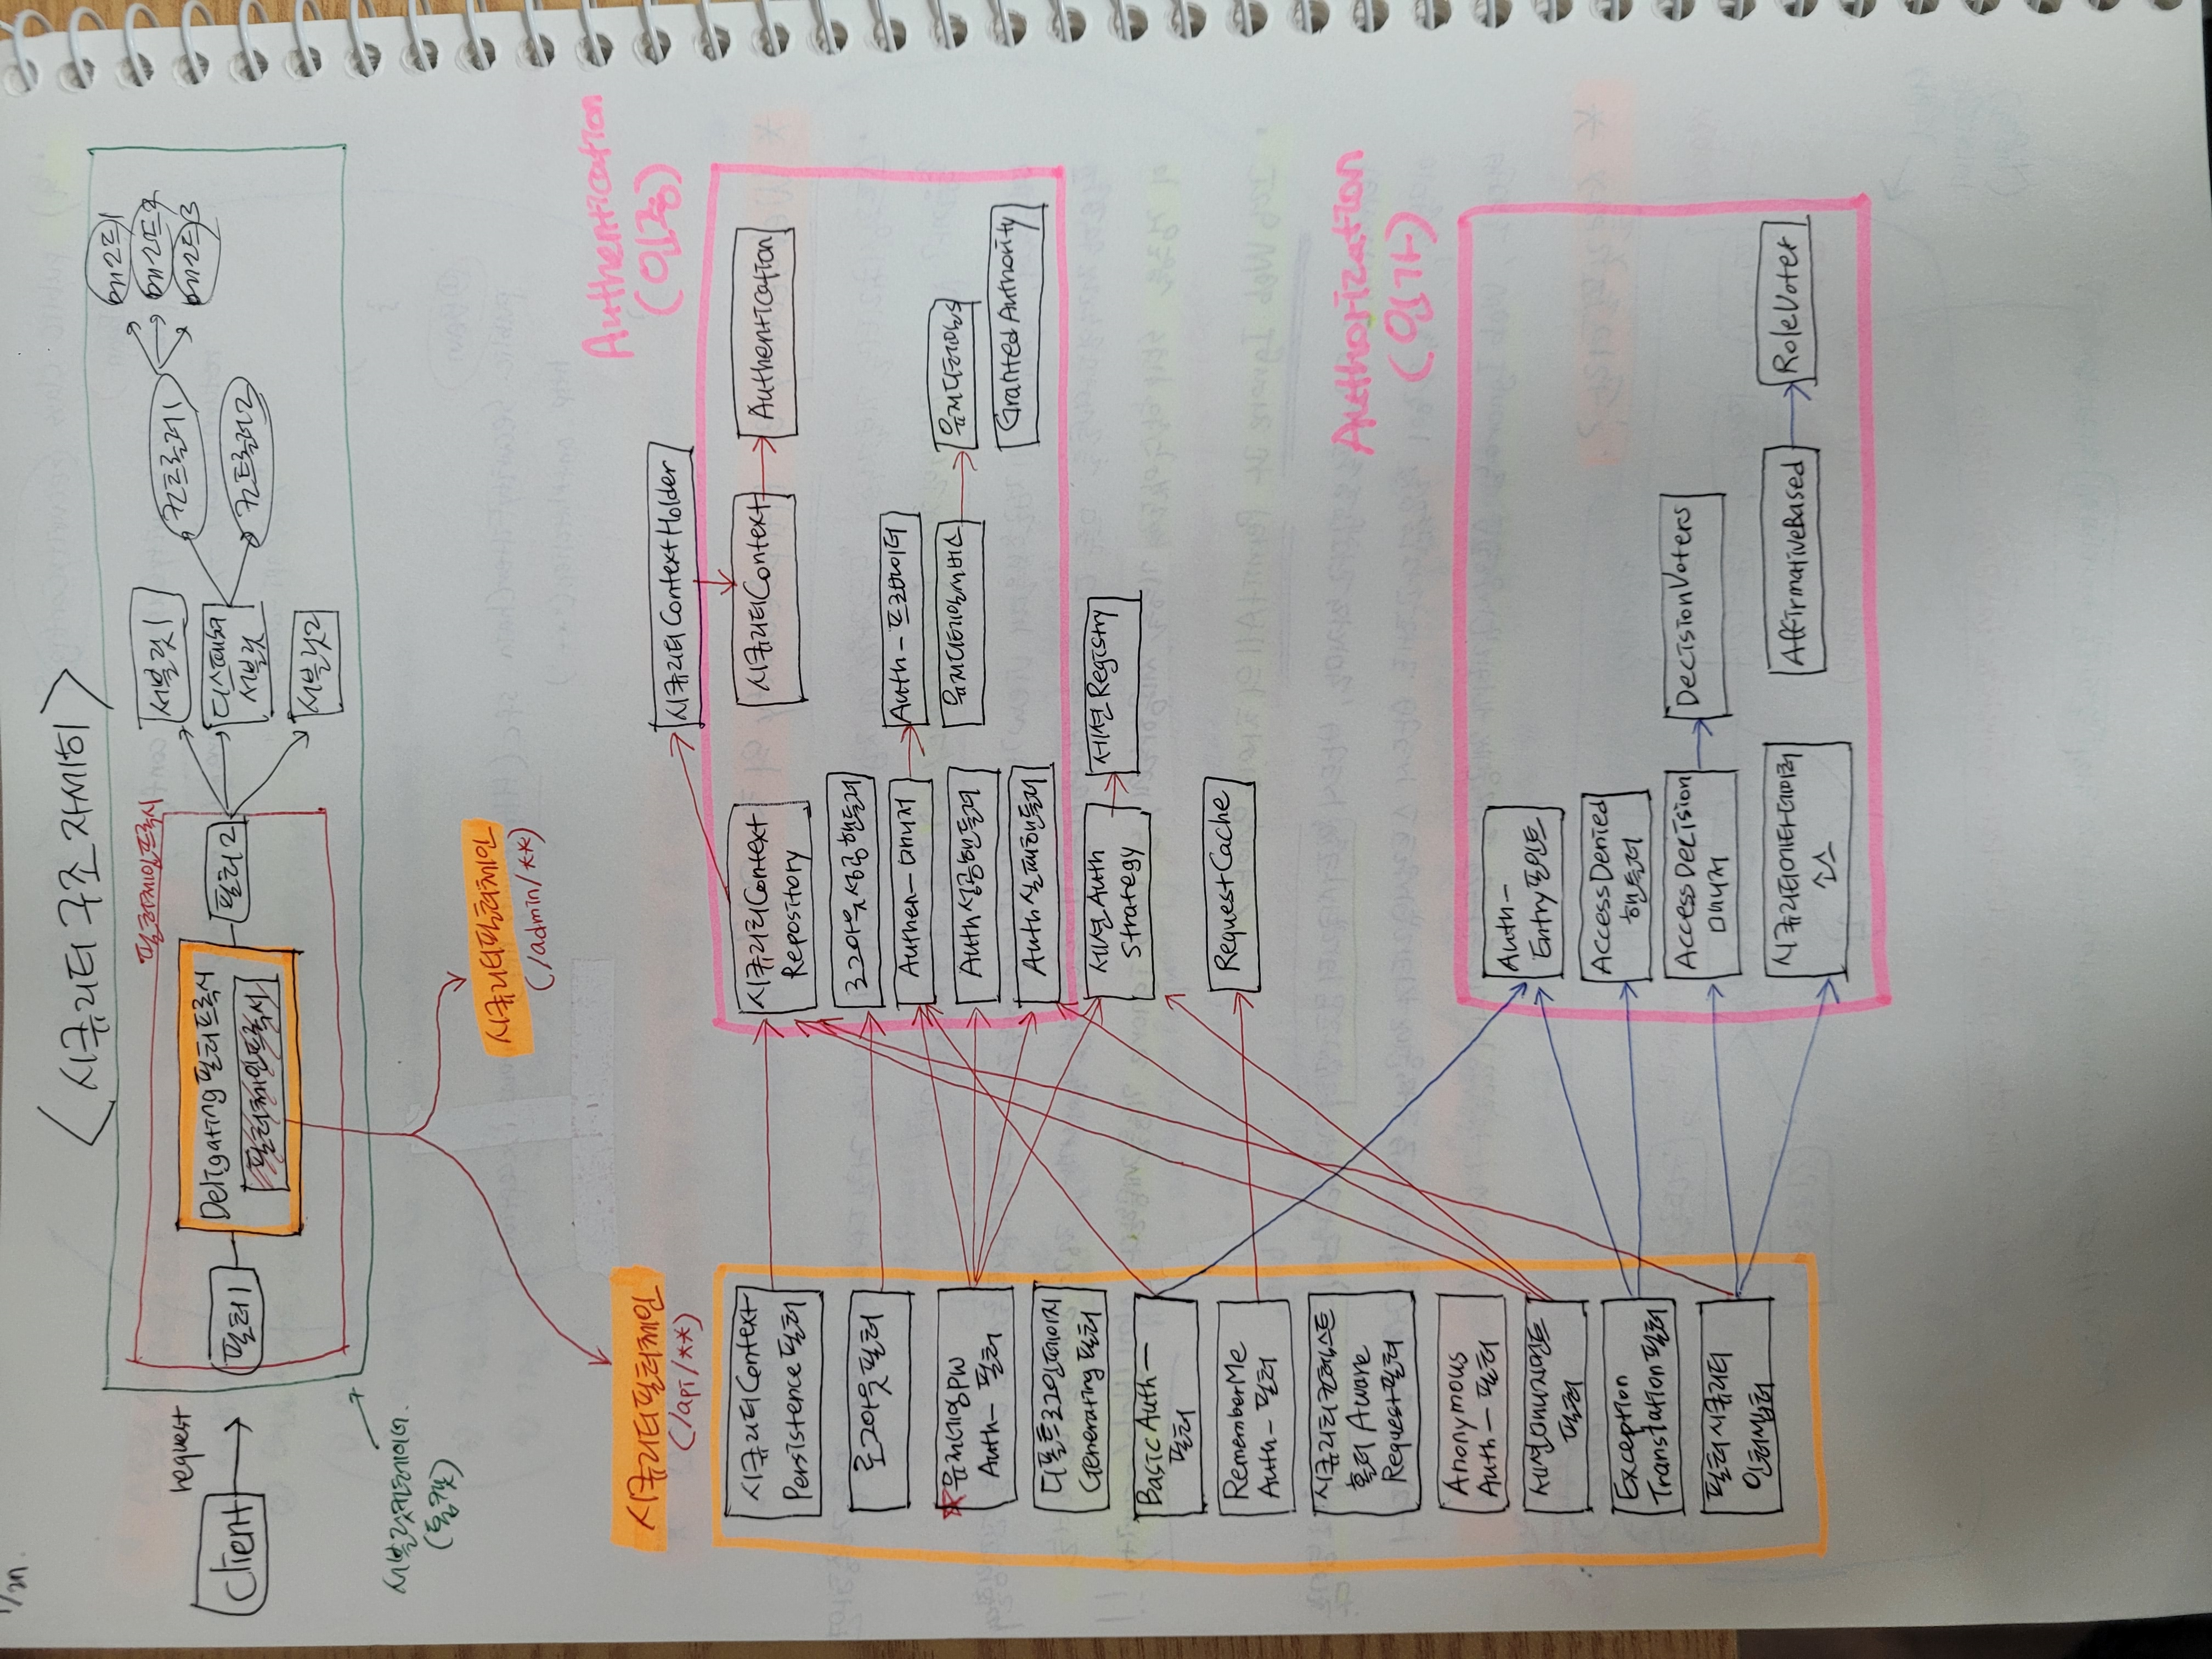 <시큐리티 구조 자세히>
request
Client
서블릿컨테이너
(톰캣)
필터체인프록시
필터1
Deligating필터프록시
필터체인프록시
필터2
서블릿1
디스패처
서블릿
서블릿2
컨트롤러1
컨트롤러2
메소드1
메소드2
메소드3
시큐리티필터체인
(/admin/**)
시큐리티필터체인
(/api/**)
시큐리티Context
Persistence필터
로그아웃필터
유저네임PW
Auth-필터
디폴트로그인페이지
Generating필터
BasicAuth-
필터
RememberMe
Auth-필터
시큐리티컨텍스트
홀더Aware
Request필터
Anonymous
Auth-필터
세션매니지먼트
필터
Exception
Translation필터
필터시큐리티
인터셉터
Authentication
(인증)
시큐리티ContextHolder
시큐리티Context
Repository
시큐리티Context
Authentication
로그아웃성공핸들러
Authen-매니저
Auth-프로바이더
Auth성공핸들러
유저디테일서비스
유저디테일스
Auth실패핸들러
GrantedAuthority
세션Auth
Strategy
세션Registry
RequestCache
Authorization
(인가)
Auth-
Entry포인트
AccessDenied
핸들러
AccessDecision
매니저
DecisionVoters
시큐리티메타데이터
소스
AffirmativeBased
RoleVoter